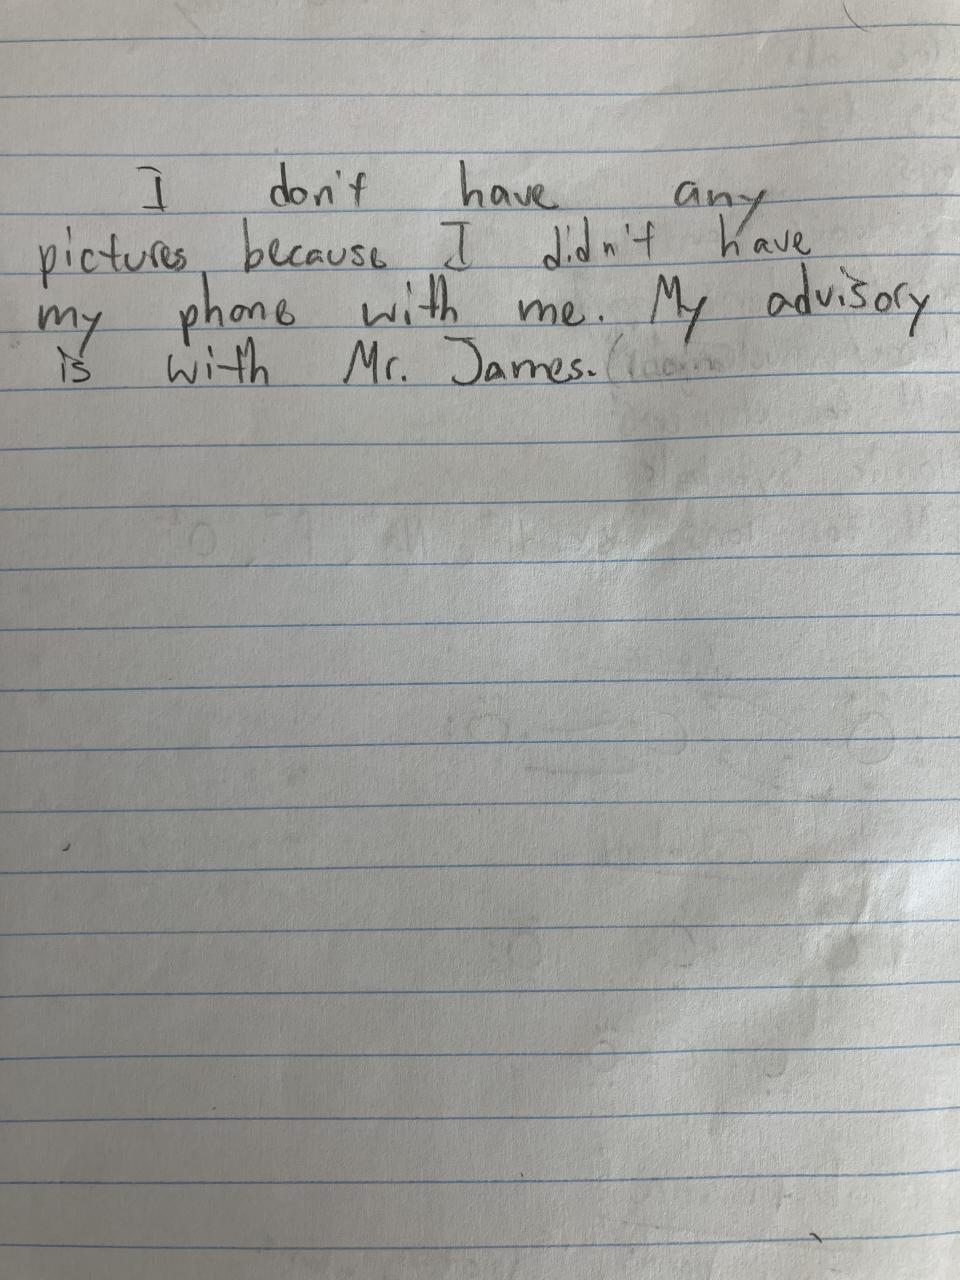 I don't have any
pictures because I didn't have
my phone with me. My advisory
is with Mr. James.